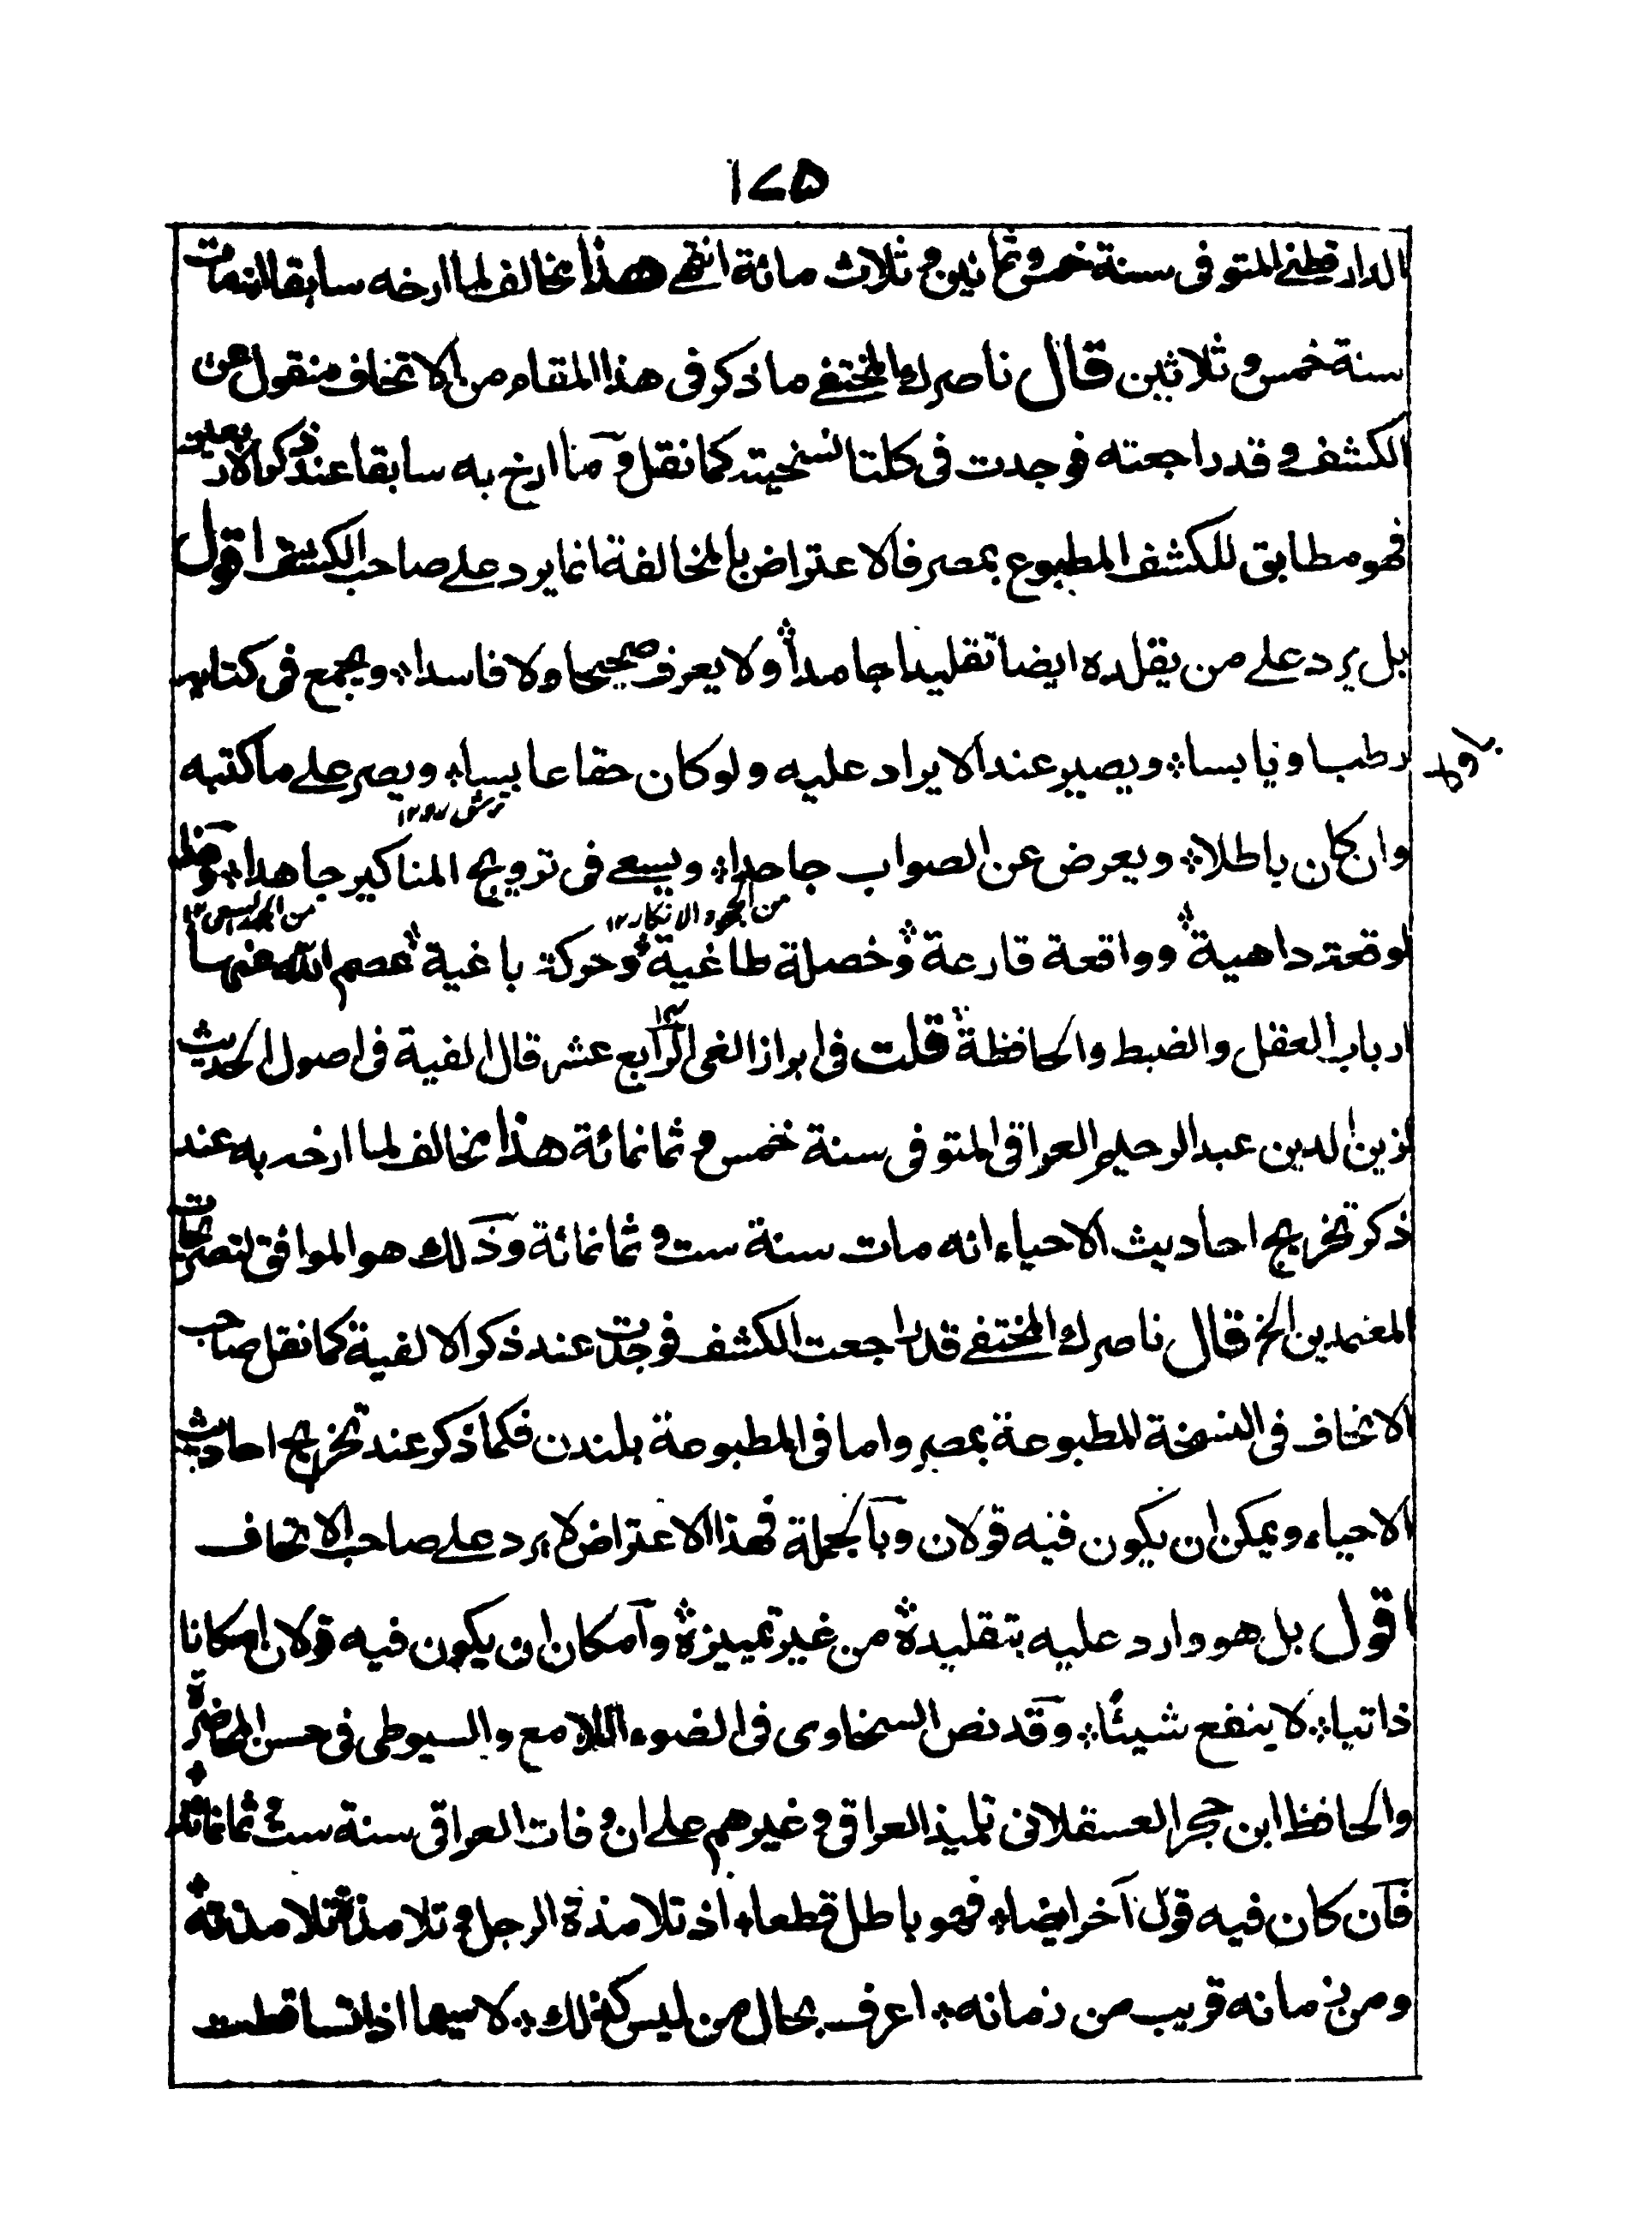 ١٧٥
الدارقطني المتوفى سنة خمس وثمانين وثلاث مائة انتهى هذا مخالف لما ارخه سابقا انه مات
سنة خمس وثلاثين قال ناصرك المختفي ما ذكر في هذا المقام من الاتحاف منقول عن
الكشف وقد راجعته فوجدت في كلتا نسختيه كما نقل وما ارخ به سابقا عند ذكر الاربعين
فهو مطابق للكشف المطبوع بمصر فالاعتراض بالمخالفة انما يرد على صاحب الكشف اقول
بل يرد على من يقلده ايضا تقليدا جامدا ولا يعرف صحيحا ولا فاسدا ويجمع في كتابه
رطبا ويابسا ويصير عند الايراد عليه ولو كان حقا عابسا ويصر على ما كتبه
ترش رو ١٢
وان كان باطلا ويعرض عن الصواب جاحدا ويسعى في ترويج المناكير جاهدا
من الجحود الانكار ١٢
لوقعة داهية وواقعة قارعة وخصلة طاغية وحركة باغية عصم الله عنها
ارباب العقل والضبط والحافظة قلت في ابراز الغي الرابع عشر قال الفية في اصول الحديث
لزين الدين عبد الرحيم العراقي المتوفى سنة خمس وثمانمائة هذا مخالف لما ارخه به عند
ذكر تخريج احاديث الاحياء انه مات سنة ست وثمانمائة وذلك هو الموافق لتصريحات
المعتمدين الخ قال ناصرك المختفي قد راجعت الكشف فوجدت عند ذكر الالفية كما نقل صاحب
الاتحاف في النسخة المطبوعة بمصر واما في المطبوعة بلندن فكما ذكر عند تخريج احاديث
الاحياء ويمكن ان يكون فيه قولان وبالجملة فهذا الاعتراض لا يرد على صاحب الاتحاف
اقول بل هو وارد عليه بتقليده من غير تمييزه وامكان ان يكون فيه قولان امكانا
ذاتيا لا ينفع شيئا وقد نص السخاوي في الضوء اللامع والسيوطي في حسن المحاضرة
والحافظ ابن حجر العسقلاني تلميذ العراقي وغيرهم على ان وفات العراقي سنة ست وثمانمائة
فان كان فيه قول آخر ايضا فهو باطل قطعا اذ تلامذة الرجل وتلامذة تلامذته
ومن زمانه قريب من زمانه اعرف بحال من ليس كذلك لا سيما اذا تساقطت